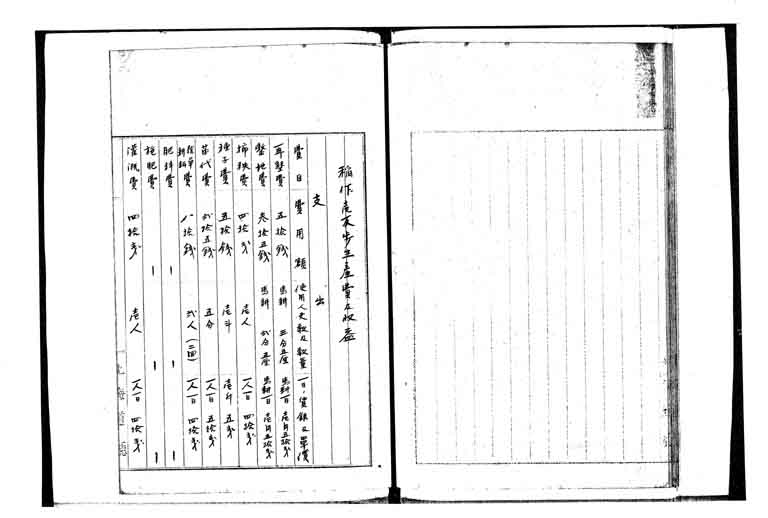 稲作壱反歩生産費及収益
支出
費目 費用額 使用人夫数及数量 一日ノ賃銀及単價
耕墾費 五拾銭 馬耕 三分五厘 馬耕一日 壱円五拾銭
整地費 参拾五銭 馬耕 弐分五厘 馬耕一日 壱円五拾銭
挿秧費 四拾銭 壱人 一人一日 四拾銭
種子費 五拾銭 壱斗 壱斗 五銭
苗代費 弐拾五銭 五分 一人一日 五拾銭
除草費 八拾銭 弐人(二回) 一人一日 四拾銭
肥料費 ー ー ー
施肥費 ー ー ー
灌漑費 四拾銭 壱人 一人一日 四拾銭
北海道廳